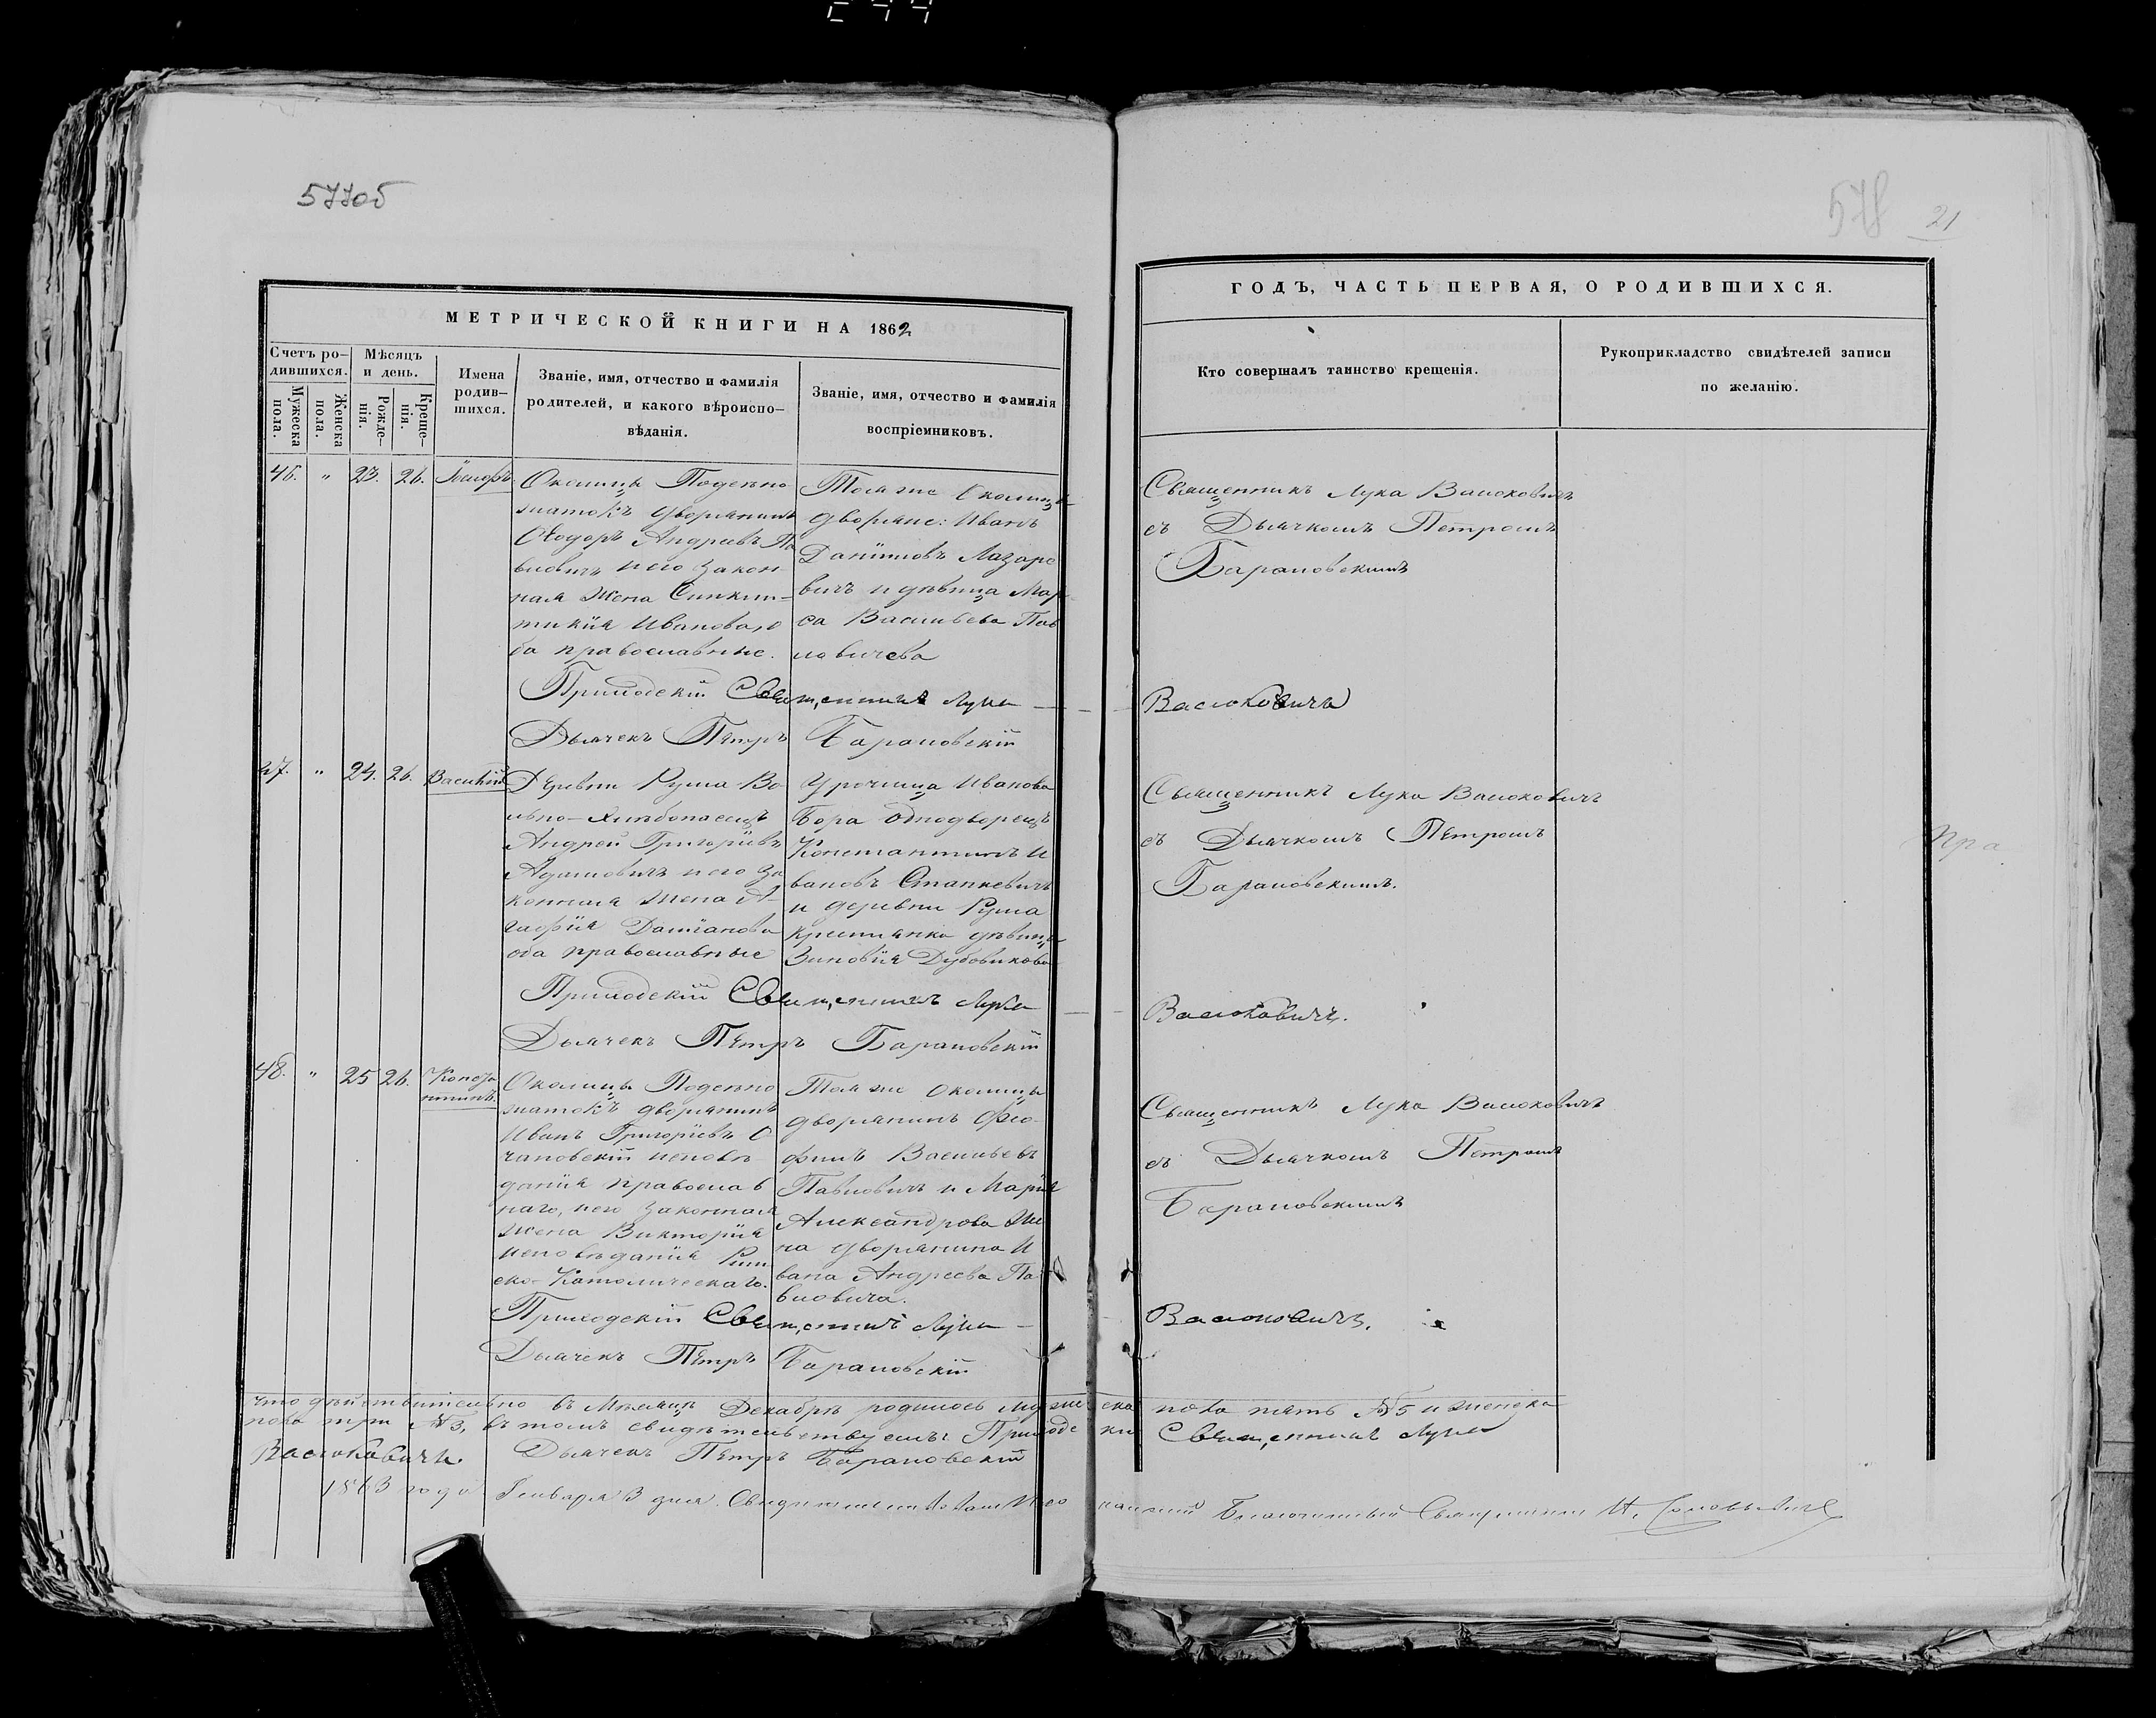 577об
578
21
МЕТРИЧЕСКОЙ КНИГИ НА 1862
Счетъ ро-
дившихся.
Мужеска
пола.
Женска
пола.
Мѣсяцъ
и день.
Рожде-
нія.
Креще-
нія.
Имена
родив-
шихся.
Званіе, имя, отчество и фамилія
родителей, и какого вѣроиспо-
вѣданія.
Званіе, имя, отчество и фамилія
воспріемниковъ.
ГОДЪ, ЧАСТЬ ПЕРВАЯ, О РОДИВШИХСЯ.
Кто совершалъ таинство крещенія.
Рукоприкладство свидѣтелей записи
по желанію.
46. " 23. 26.
Околицы
дворянинъ
Ѳеодоръ Андреевъ Па
вловичъ и его Закон
ная Жена
Иванова, о
ба православные.
Тояже Околицы
дворяне: Иванъ
Даніиловъ Лазаре
вичъ и дѣвица Мар
ѳа Васильева Пав
ловичева
Священникъ Лука Васюковичъ
съ Дьячкомъ Петромъ
Барановскимъ
Приходскій Священникъ Лука Васюковичъ
Дьячекъ Пётръ Барановскій
47. " 24. 26. Василій
Деревни Рума Во
льно-Хлѣбопашецъ
Андрей Григоріевъ
Адамовичъ и его За
конная Жена А
гафія Даміанова
оба православные
Урочища Иванова
Бора Однодворецъ
Константинъ И
вановъ Станкевичъ
и деревни Рума
крестьянка дѣвица
Зиновія Дубовикова
Священникъ Лука Васюковичъ
съ Дьячкомъ Пётромъ
Барановскимъ.
пра
Приходскій Священникъ Лука Васюковичъ.
Дьячекъ Пётръ Барановскій
48. " 25 26. Конста
нтинъ.
Околицы
дворянинъ
Иванъ Григоріевъ О
чановскій исповѣ
данія православ
наго, и его Законная
Жена Викторія
исповѣданія Рим
ско-Католическаго.
Тояже Околицы
дворянинъ Фео
филъ Васильевъ
Павловичъ и Марія
Александрова Же
на дворянина И
вана Андреева Па
вловича.
Священникъ Лука Васюковичъ
съ Дьячкомъ Петромъ
Барановскимъ
Приходскій Священникъ Лука Васюковичъ.
Дьячекъ Пётръ Барановскій
Что дѣйствительно въ Мѣсяцѣ Декабрѣ родилось мужеска пола пять №5 и женска
пола три №3, въ томъ свидѣтельствуемъ: Приходски Священникъ Лука
Васюковичъ. Дьячекъ Пётръ Барановскій
1863 года Января 3 дня. Благочинный Священникъ